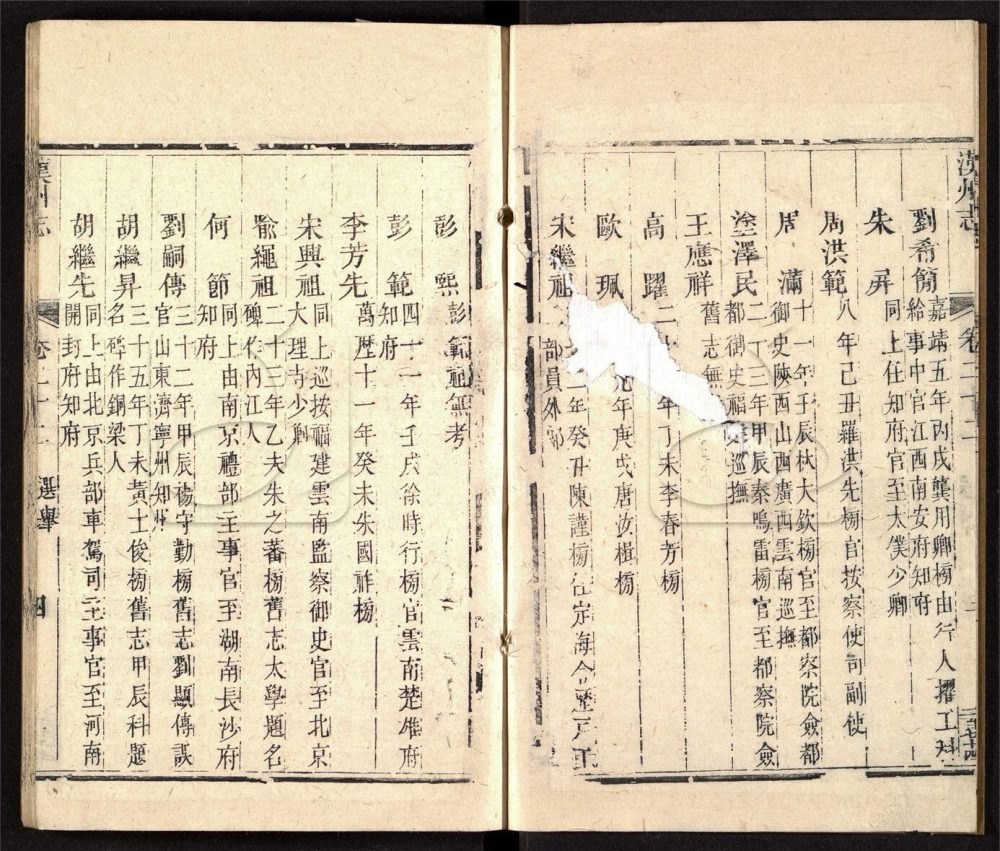 漢州志
卷二十二
劉希簡 嘉靖五年丙戌龔用卿榜由行人擢工科
給事中官江西南安府知府
朱屏 同上任知府官至太僕少卿
周洪範 八年己丑羅洪先榜官按察使司副使
周滿 十一年壬辰林大欽榜官至都察院僉都
御史陝西山西廣西雲南巡撫
塗澤民 二十三年甲辰秦鳴雷榜官至都察院僉
都御史福建巡撫
王應祥 舊志無
高躍 二十 年丁未李春芳榜
歐珮 九年庚戌唐汝楫榜
宋繼祖 二年癸丑陳謹榜任定海令
部員外郎
彭熙 彭範祖無考
彭範 四十一年壬戌徐時行榜官雲南楚雄府
知府
李芳先 萬歷十一年癸未朱國祚榜
宋興祖 同上巡按福建雲南監察御史官至北京
大理寺少卿
喻繩祖 二十三年乙未朱之蕃榜舊志太學題名
碑作內江人
何節 同上由南京禮部主事官至湖南長沙府
知府
劉嗣傳 三十二年甲辰楊守勤榜舊志劉顯傳誤
官山東濟寧州知州
胡繼昇 三十五年丁未黃士俊榜舊志甲辰科題
名碑作銅梁人
胡繼先 同上由北京兵部車駕司主事官至河南
開封府知府
漢州志
卷二十二 選舉 四